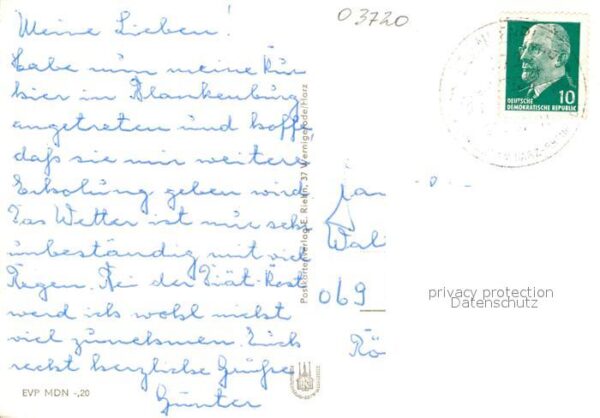 03720
Meine Lieben!
Habe nun meine Kur
hier in Blankenburg
angetreten und hoffe,
daß sie mir weitere
Erholung geben wird.
Das Wetter ist nur sehr
unbeständig mit viel
Regen. Bei der Diät-Kost
werd ich wohl nicht
viel zunehmen. Euch
recht herzliche Grüße
Günter
EVP MDN -,20
Postkartenverlag E. Riehn, 37 Wernigerode/Harz
DEUTSCHE
DEMOKRATISCHE REPUBLIK
10
069
privacy protection
Datenschutz
Rö